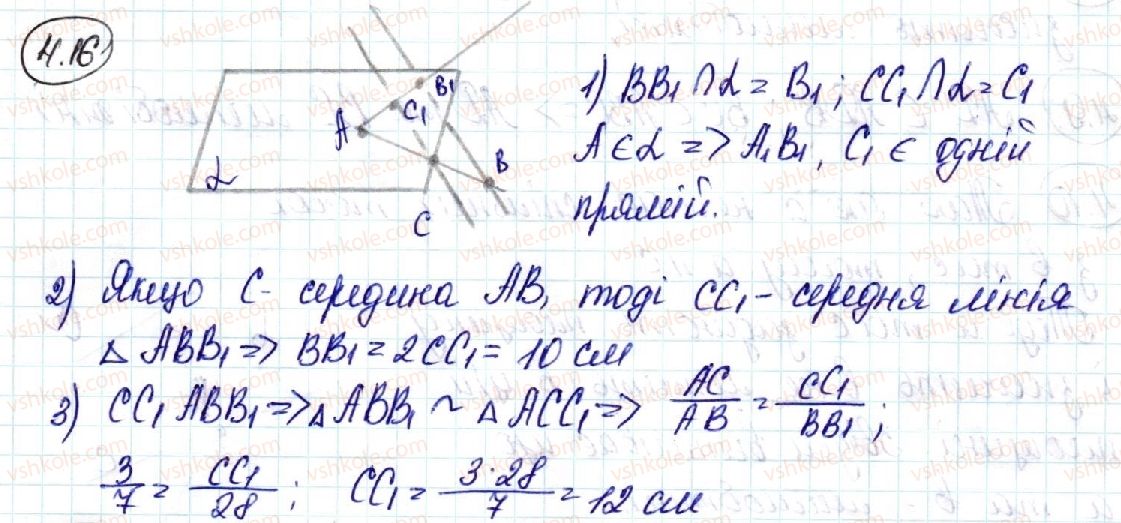 4.16
B₁
C₁
A
B
α
C
1) BB₁ ∩ α = B₁; CC₁ ∩ α = C₁
A ∈ α => A₁B₁, C₁ є одній
прямій.
2) Якщо C - середина AB, тоді CC₁ - середня лінія
△ ABB₁ => BB₁ = 2CC₁ = 10 см
3) CC₁ ABB₁ => △ ABB₁ ~ △ ACC₁ => AC/AB = CC₁/BB₁;
3/7 = CC₁/28; CC₁ = 3·28/7 = 12 см
vshkole.com